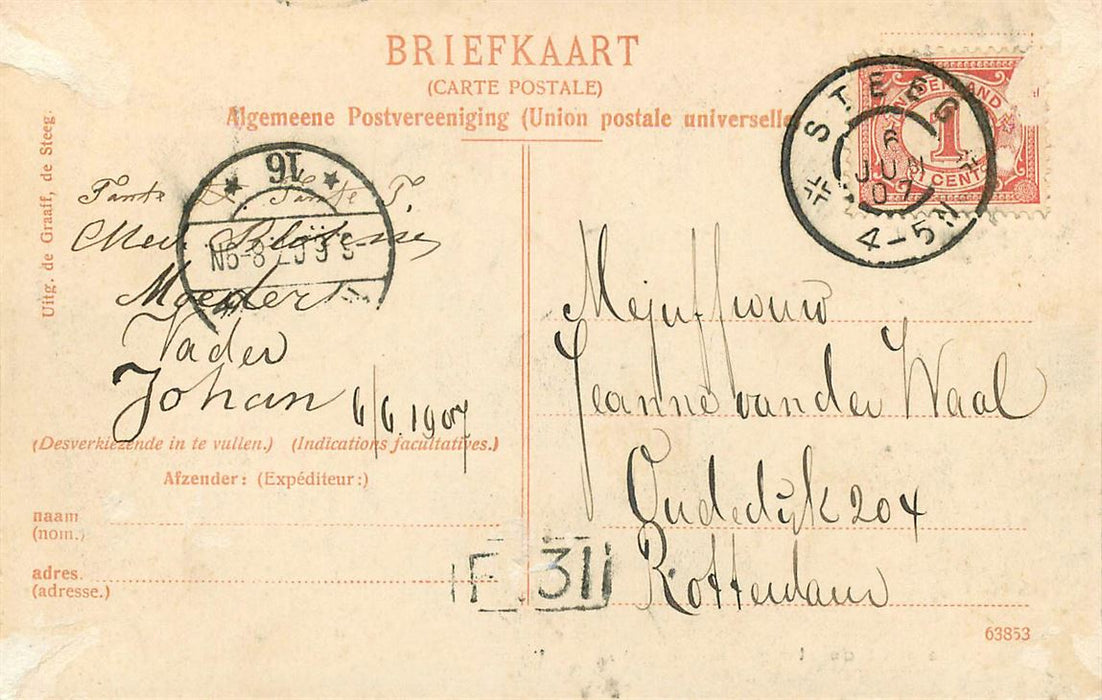 BRIEFKAART
(CARTE POSTALE)
Algemeene Postvereeniging (Union postale universelle
NEDERLAND
1
CENT
STEEG
6
JUN
07
4-5N
Uitg. de Graaff, de Steeg.
16
N5-8
Tante Tante T.
Mev.
Moeder
Vader
Johan 6/6 1907
(Desverkiezende in te vullen.) (Indications facultatives.)
Afzender: (Expéditeur:)
naam
(nom.)
adres.
(adresse.)
Mejuffrouw
Jeanne van der Waal
Oudedijk 204
Rotterdam
F. 311
63853